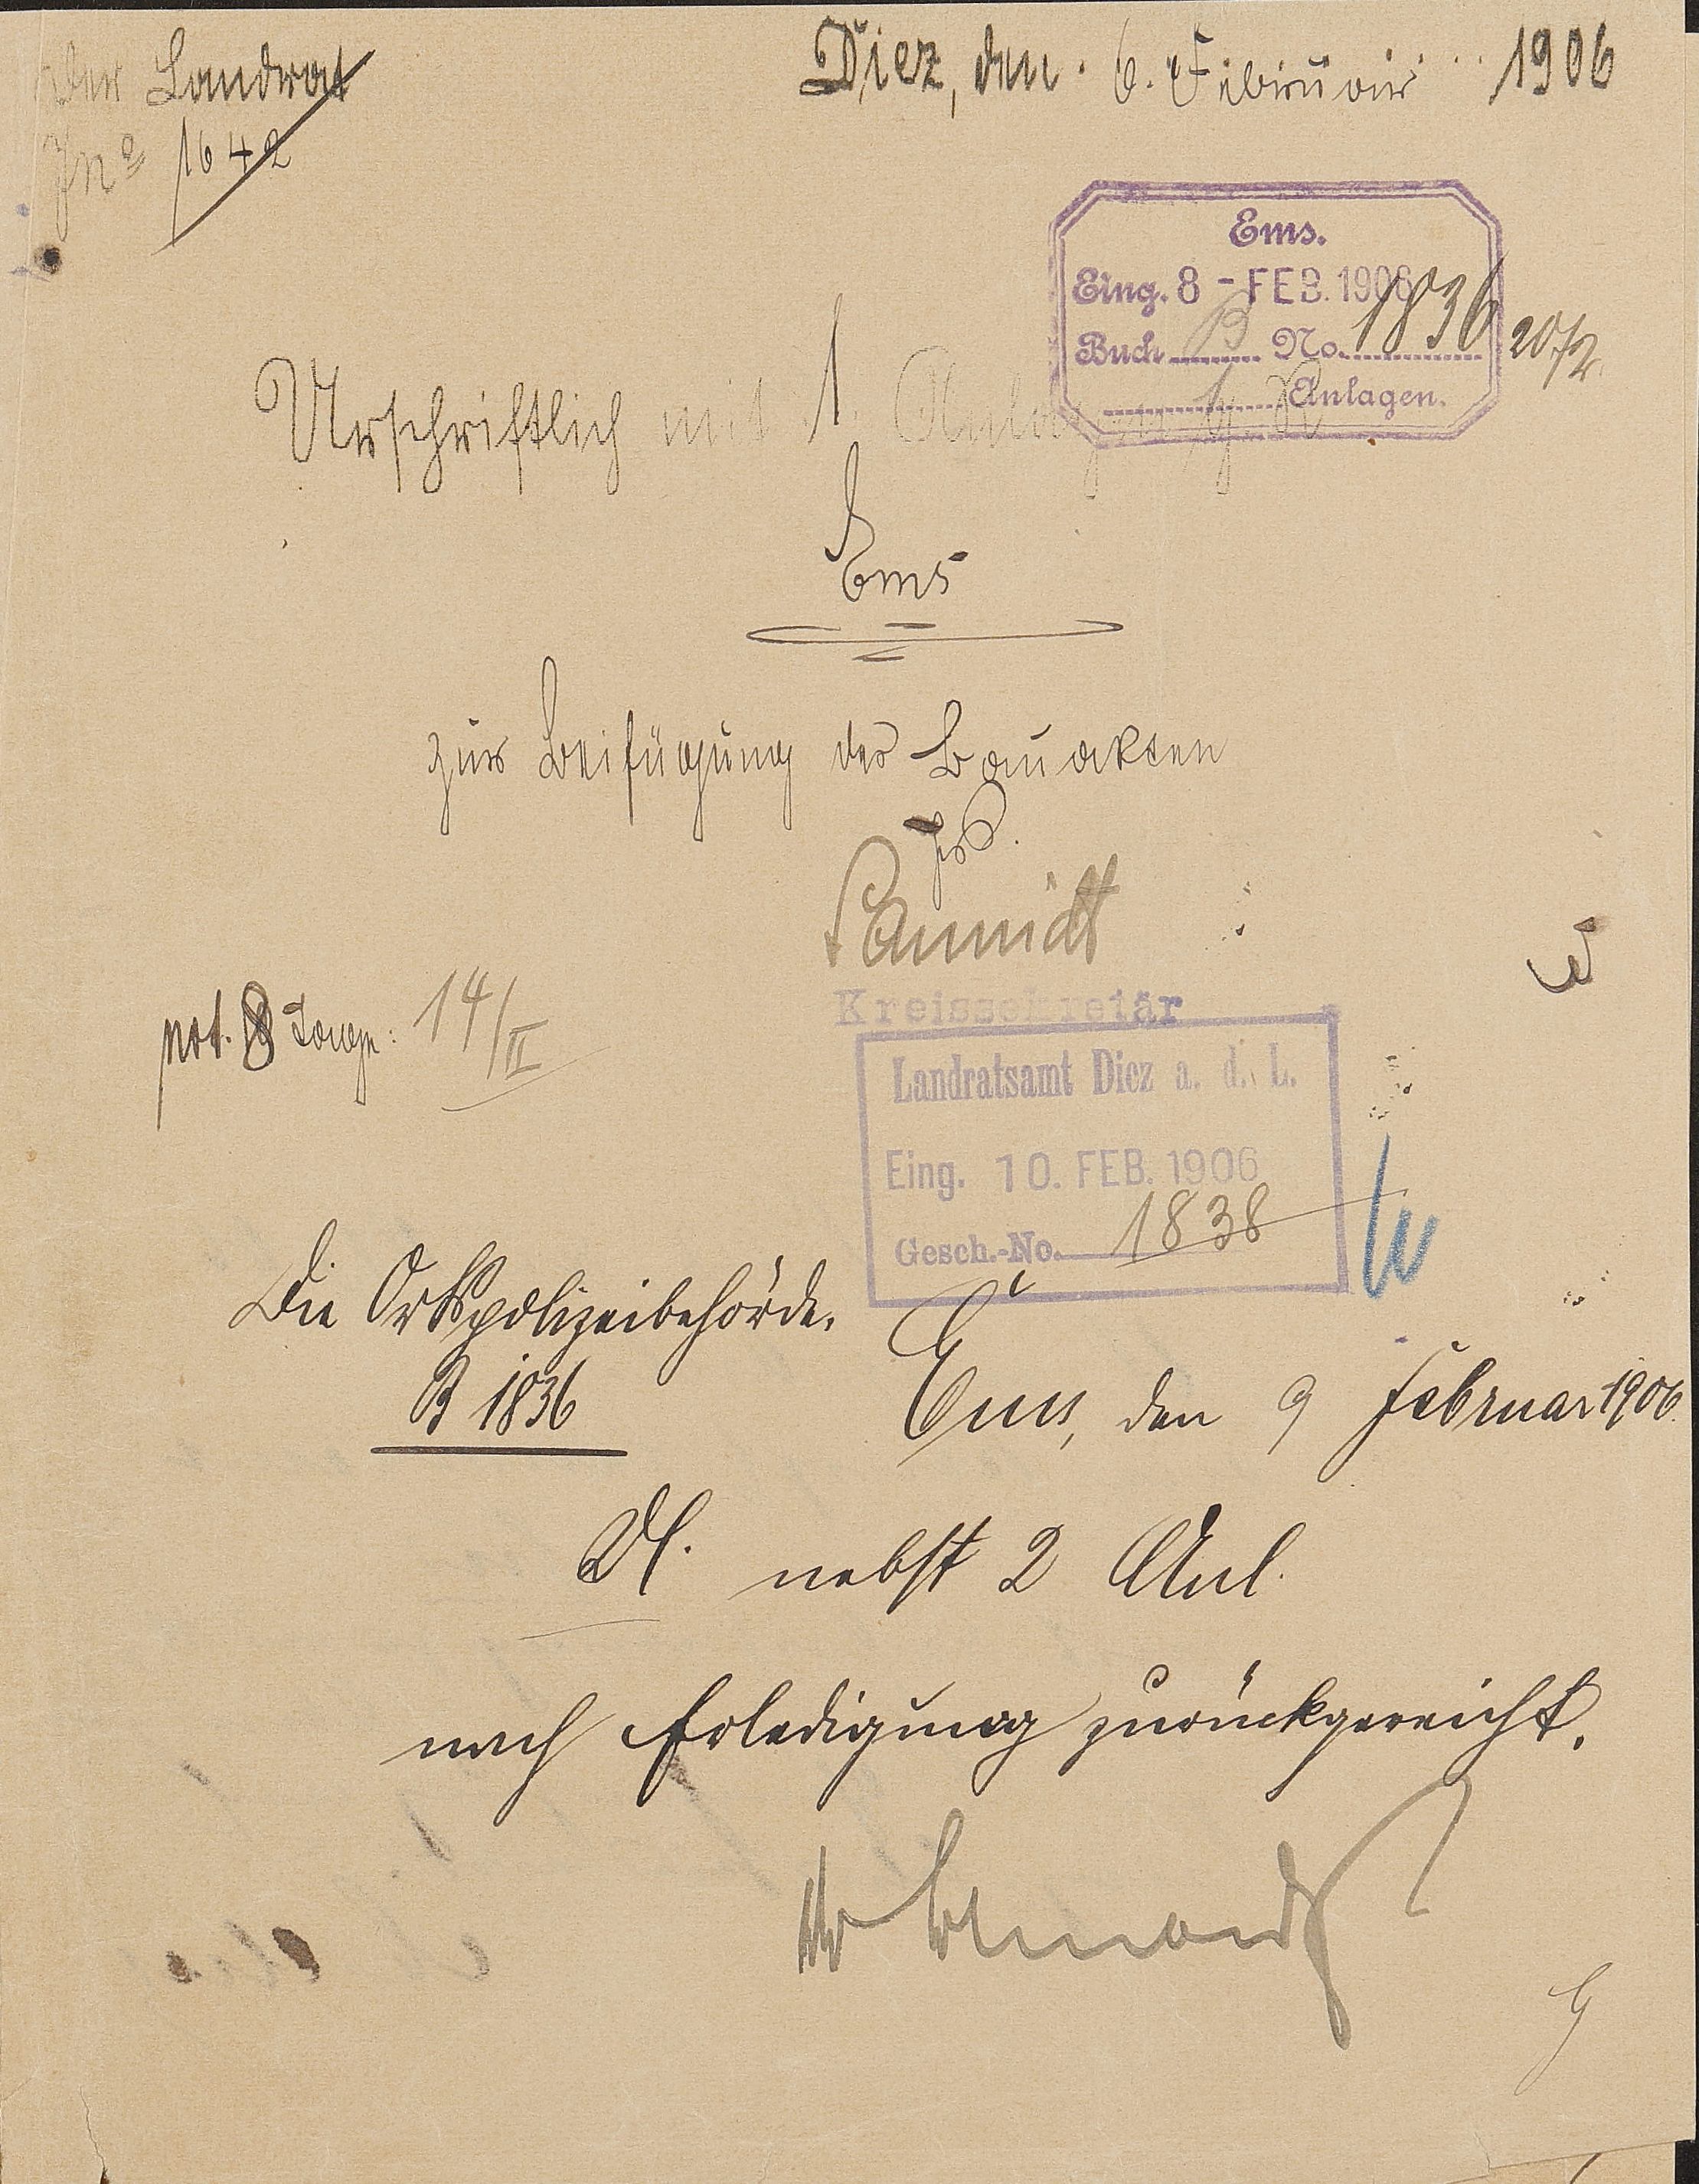 Der Landrat
Diez, den 6. Februar 1906
J Nº 1642
Ems.
Eing. 8 - FEB. 1906
Buch B No. 1836
1 Anlagen.
20/2.
Urschriftlich mit 1. Anlagen g. R.
Ems
zur Beifügung der Bauakten
Schmidt
Kreissekretär
not. 8 Tage: 14/II
Landratsamt Diez a. d. L.
Eing. 10. FEB. 1906
Gesch.-No. 1838
Die Ortspolizeibehörde.
B 1836
Ems, den 9 Februar 1906.
U. nebst 2 Anl.
nach Erledigung zurückgereicht.